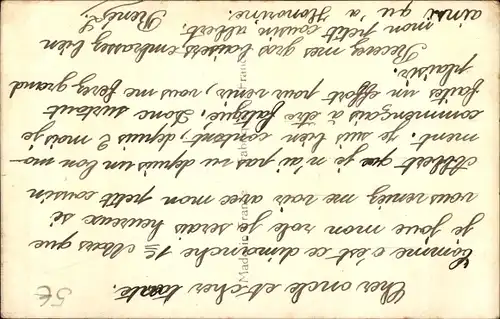 Cher oncle et cher tante.
Comme c'est ce dimanche 1er Mars que
je joue mon role je serais heureux si
vous veniez me voir avec mon petit cousin
Albert que je n'ai pas vu depuis un bon mo-
ment. Je suis bien content, depuis 2 mois je
commençais à être fatigué. Donc surtout
faites un effort pour venir, vous me ferez grand
plaisir.
Recevez mes gros baisers embrassez bien
mon petit cousin albert.
ainsi qu'à Honorine.
René
Made in France
5€